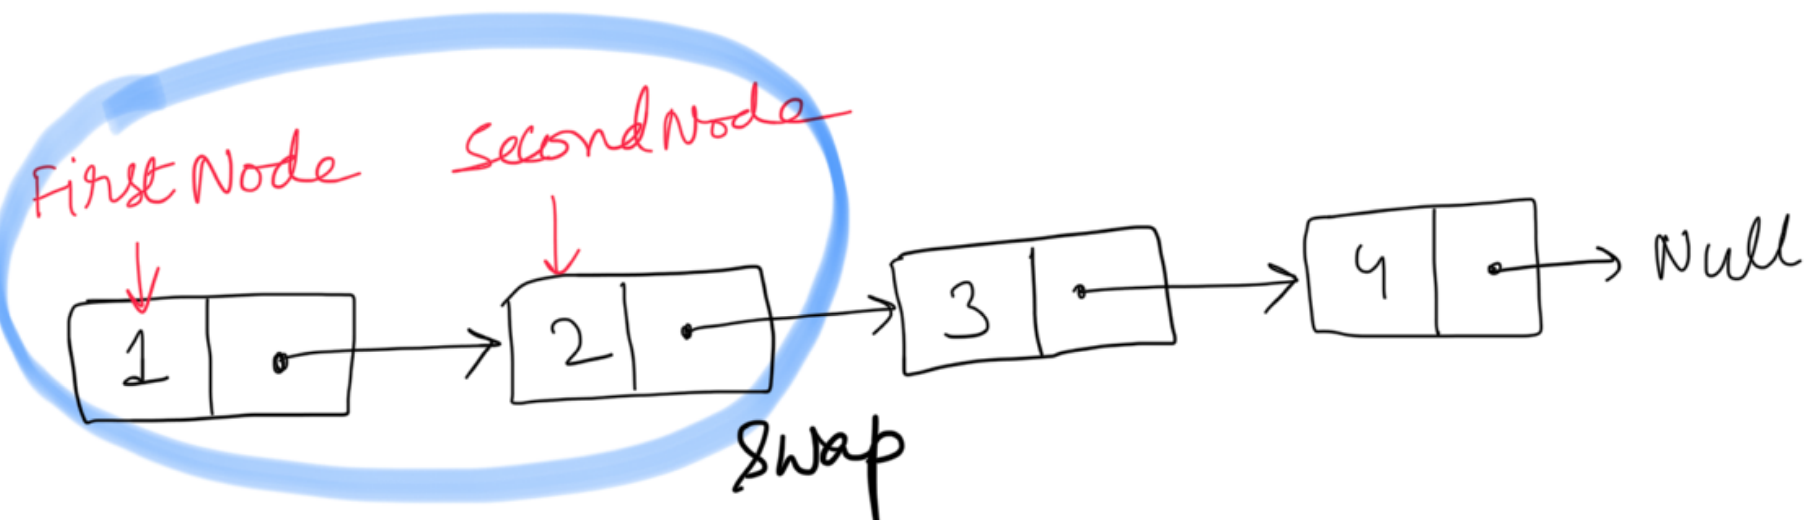 FirstNode
SecondNode
1
2
3
4
Null
Swap